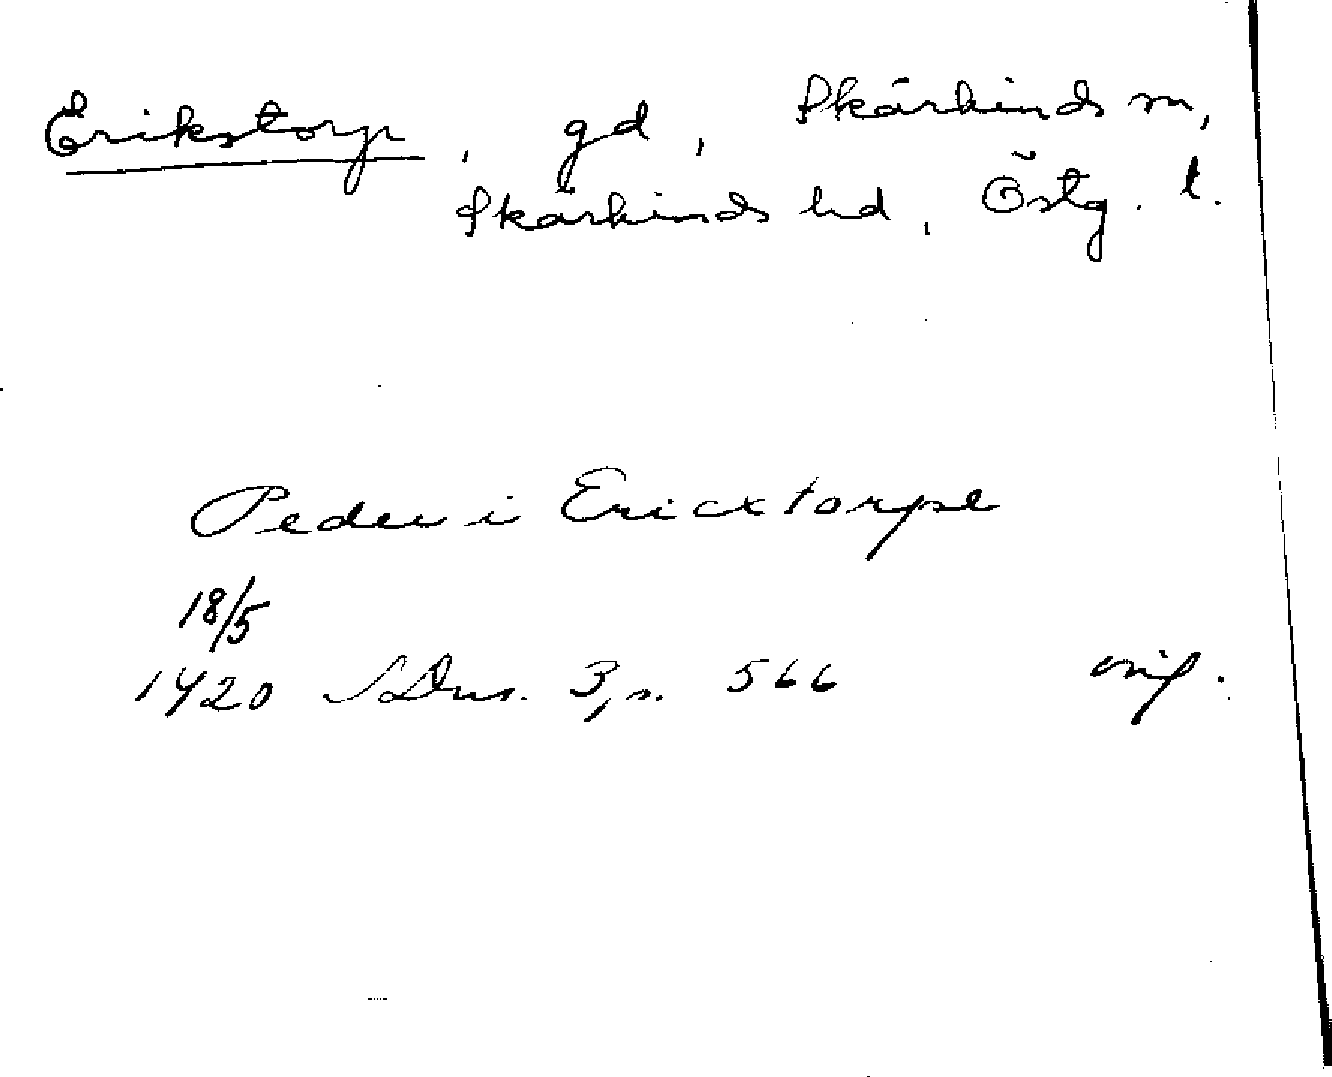 Erikstorp, gd, Skärkinds sn,
Skärkinds hd, Östg. l.
Peder i Ericxtorpe
18/5
1420 SDns. 3, s. 566 orig.